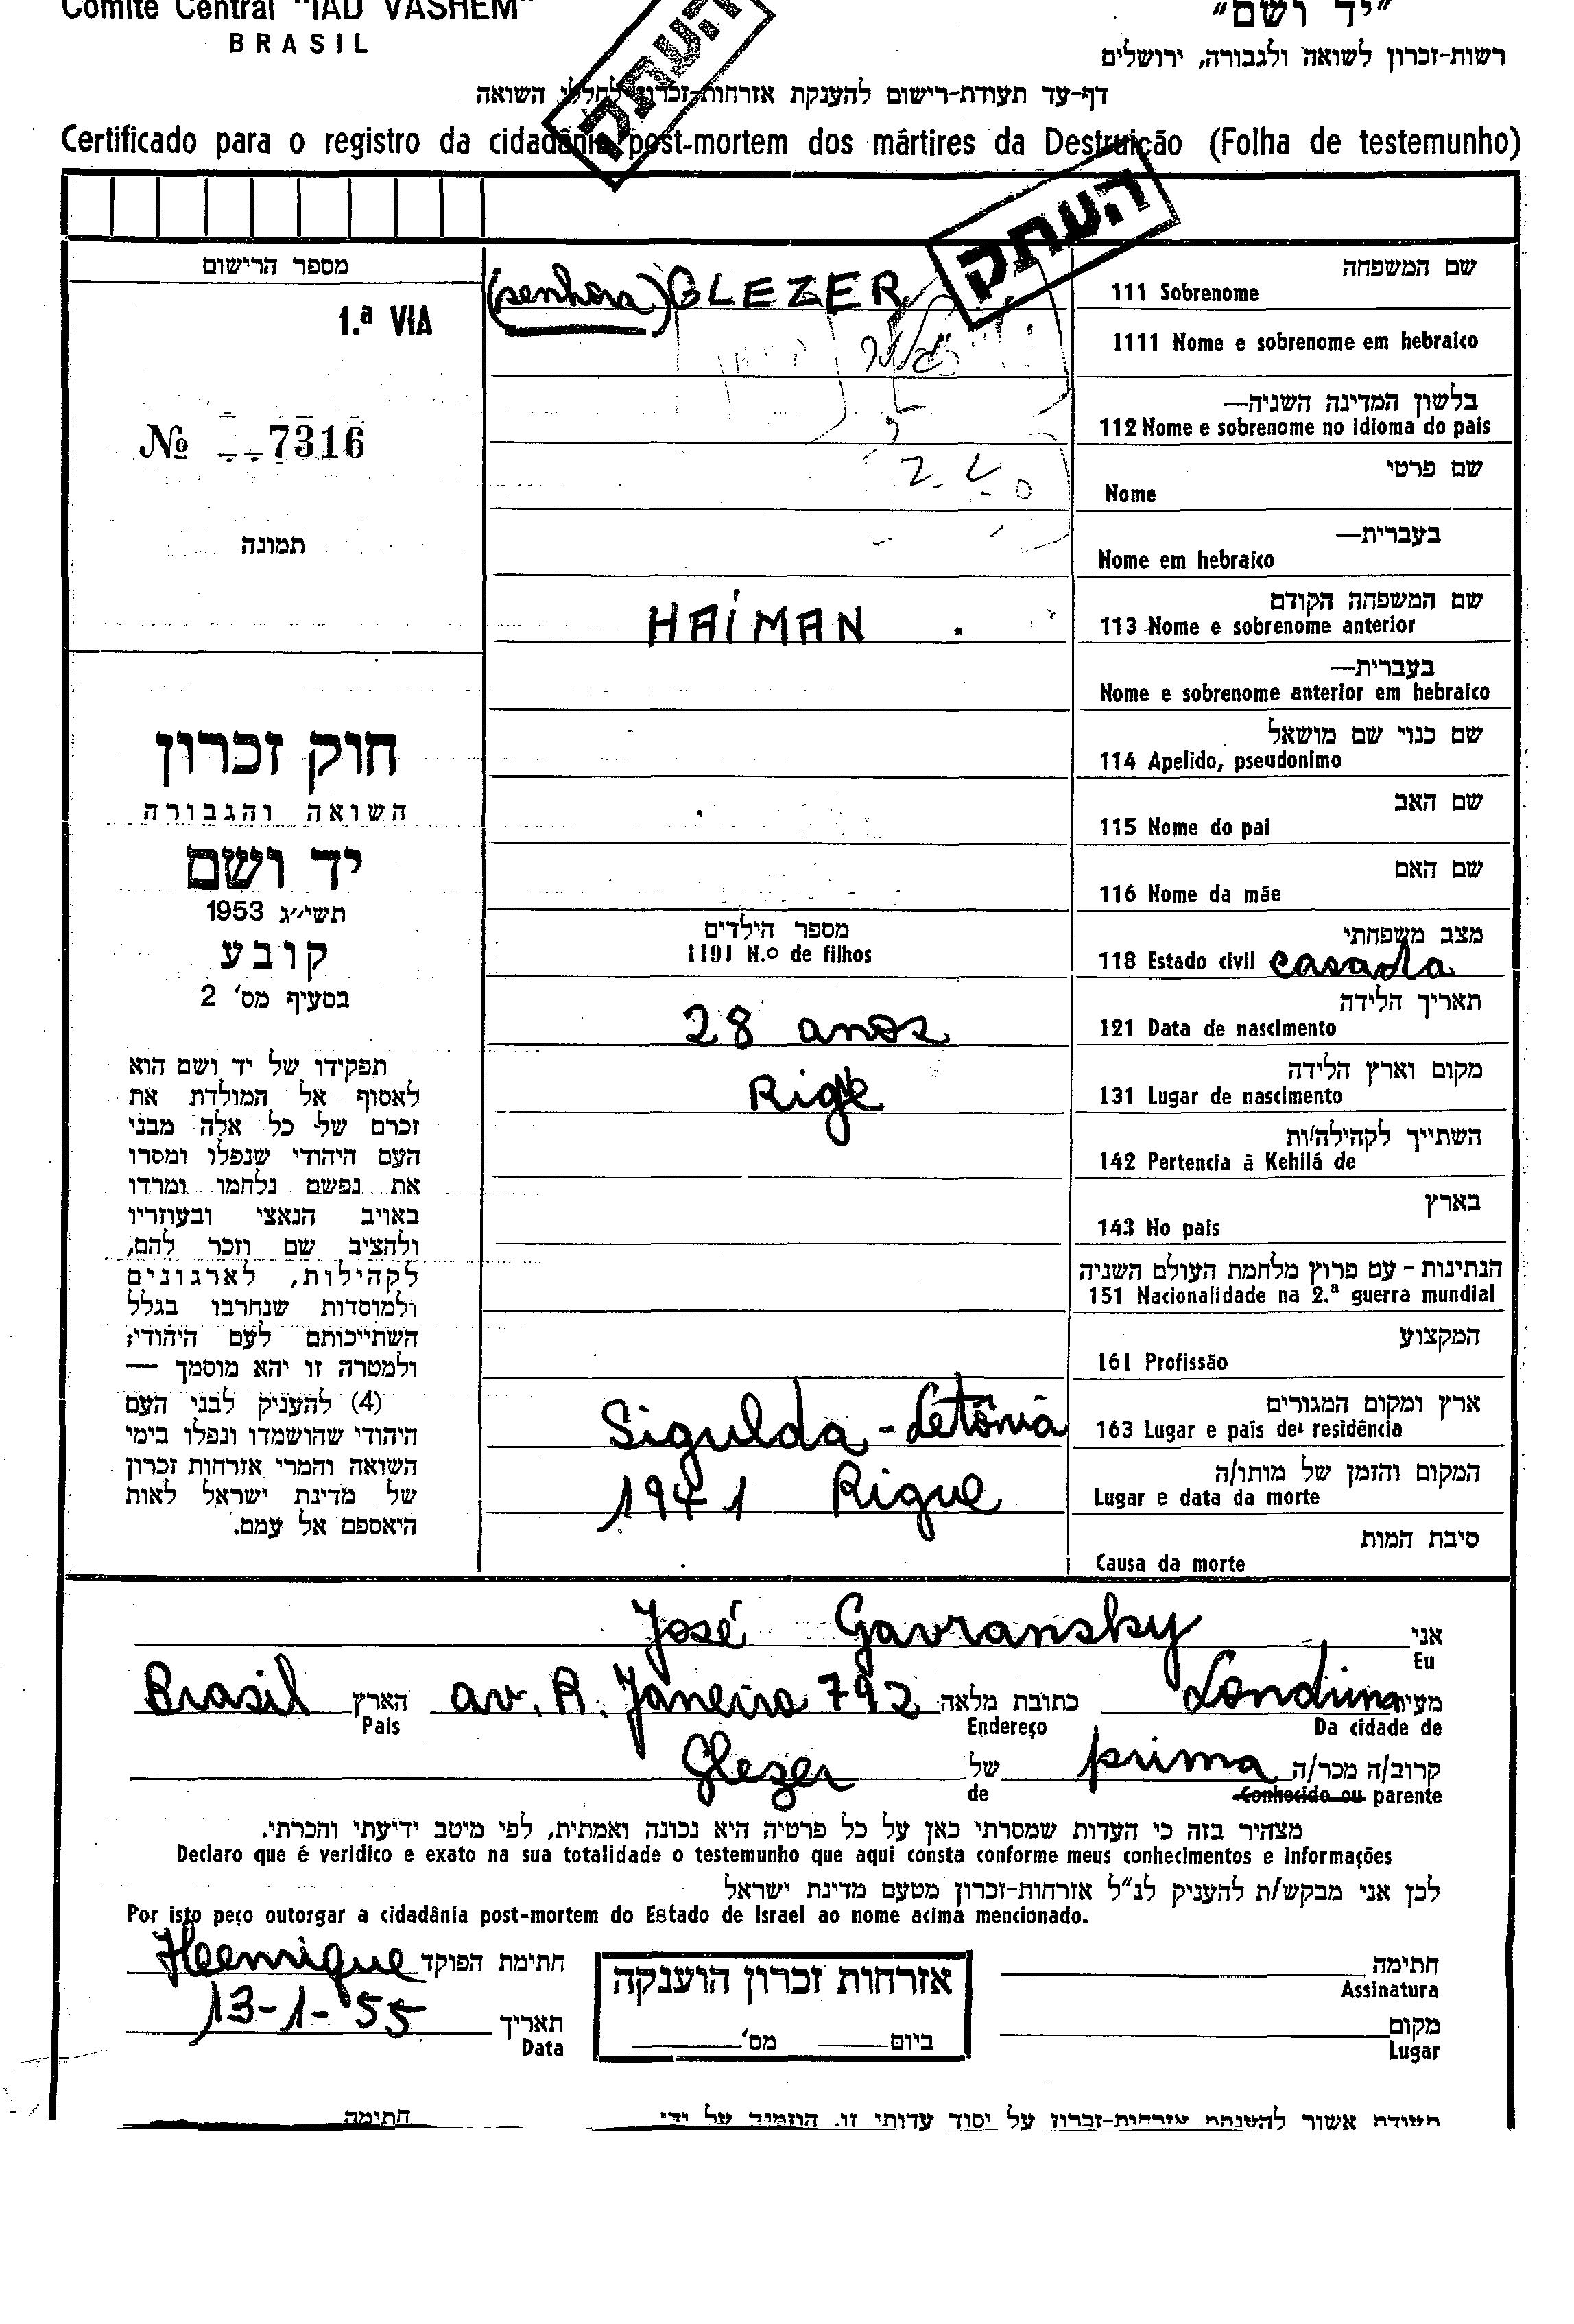 Comité Central "IAD VASHEM"
BRASIL
"יד ושם"
רשות-זכרון לשואה ולגבורה, ירושלים
דף-עד תעודת-רישום להענקת אזרחות-זכרון לחללי השואה
העתק
Certificado para o registro da cidadânia post-mortem dos mártires da Destruição (Folha de testemunho)
העתק
מספר הרישום
1.ª VIA
№ 7316
תמונה
חוק זכרון
השואה והגבורה
יד ושם
תשי״ג 1953
קובע
בסעיף מס' 2
תפקידו של יד ושם הוא
לאסוף אל המולדת את
זכרם של כל אלה מבני
העם היהודי שנפלו ומסרו
את נפשם נלחמו ומרדו
באויב הנאצי ובעוזריו
ולהציב שם וזכר להם,
לקהילות, לארגונים
ולמוסדות שנחרבו בגלל
השתייכותם לעם היהודי;
ולמטרה זו יהא מוסמך —
(4) להעניק לבני העם
היהודי שהושמדו ונפלו בימי
השואה והמרי אזרחות זכרון
של מדינת ישראל לאות
היאספם אל עמם.
שם המשפחה
111 Sobrenome (senhora) GLEZER
1111 Nome e sobrenome em hebraico
בלשון המדינה השניה—
112 Nome e sobrenome no idioma do pais
שם פרטי
Nome
בעברית—
Nome em hebraico
שם המשפחה הקודם
113 Nome e sobrenome anterior HAIMAN
בעברית—
Nome e sobrenome anterior em hebraico
שם כנוי שם מושאל
114 Apelido, pseudonimo
שם האב
115 Nome do pai
שם האם
116 Nome da mãe
מצב משפחתי
118 Estado civil casada
מספר הילדים
1191 N.º de filhos
תאריך הלידה
121 Data de nascimento 28 anos
מקום וארץ הלידה
131 Lugar de nascimento
השתייך לקהילה/ות
142 Pertencia à Kehilá de
בארץ
143 No pais
הנתינות - עם פרוץ מלחמת העולם השניה
151 Nacionalidade na 2.ª guerra mundial
המקצוע
161 Profissão
ארץ ומקום המגורים
163 Lugar e pais de residência Sigulda - Letônia
המקום והזמן של מותו/ה
Lugar e data da morte 1941 Rigue
סיבת המות
Causa da morte
אני José Gavransky
Eu
מעיר Londrina כתובת מלאה av. R. Janeiro 792 הארץ Brasil
Da cidade de Endereço Pais
קרוב/ה מכר/ה prima של Glezer
Conhecido ou parente de
מצהיר בזה כי העדות שמסרתי כאן על כל פרטיה היא נכונה ואמתית, לפי מיטב ידיעתי והכרתי.
Declaro que é veridico e exato na sua totalidade o testemunho que aqui consta conforme meus conhecimentos e informações
לכן אני מבקש/ת להעניק לנ״ל אזרחות-זכרון מטעם מדינת ישראל
Por isto peço outorgar a cidadânia post-mortem do Estado de Israel ao nome acima mencionado.
חתימה
Assinatura
מקום
Lugar
אזרחות זכרון הוענקה
ביום מס'
חתימת הפוקד
תאריך 13-1-'55
Data
תעודת אשור להענקת אזרחות-זכרון על יסוד עדותי זו. הוזמנה על ידי
חתימה